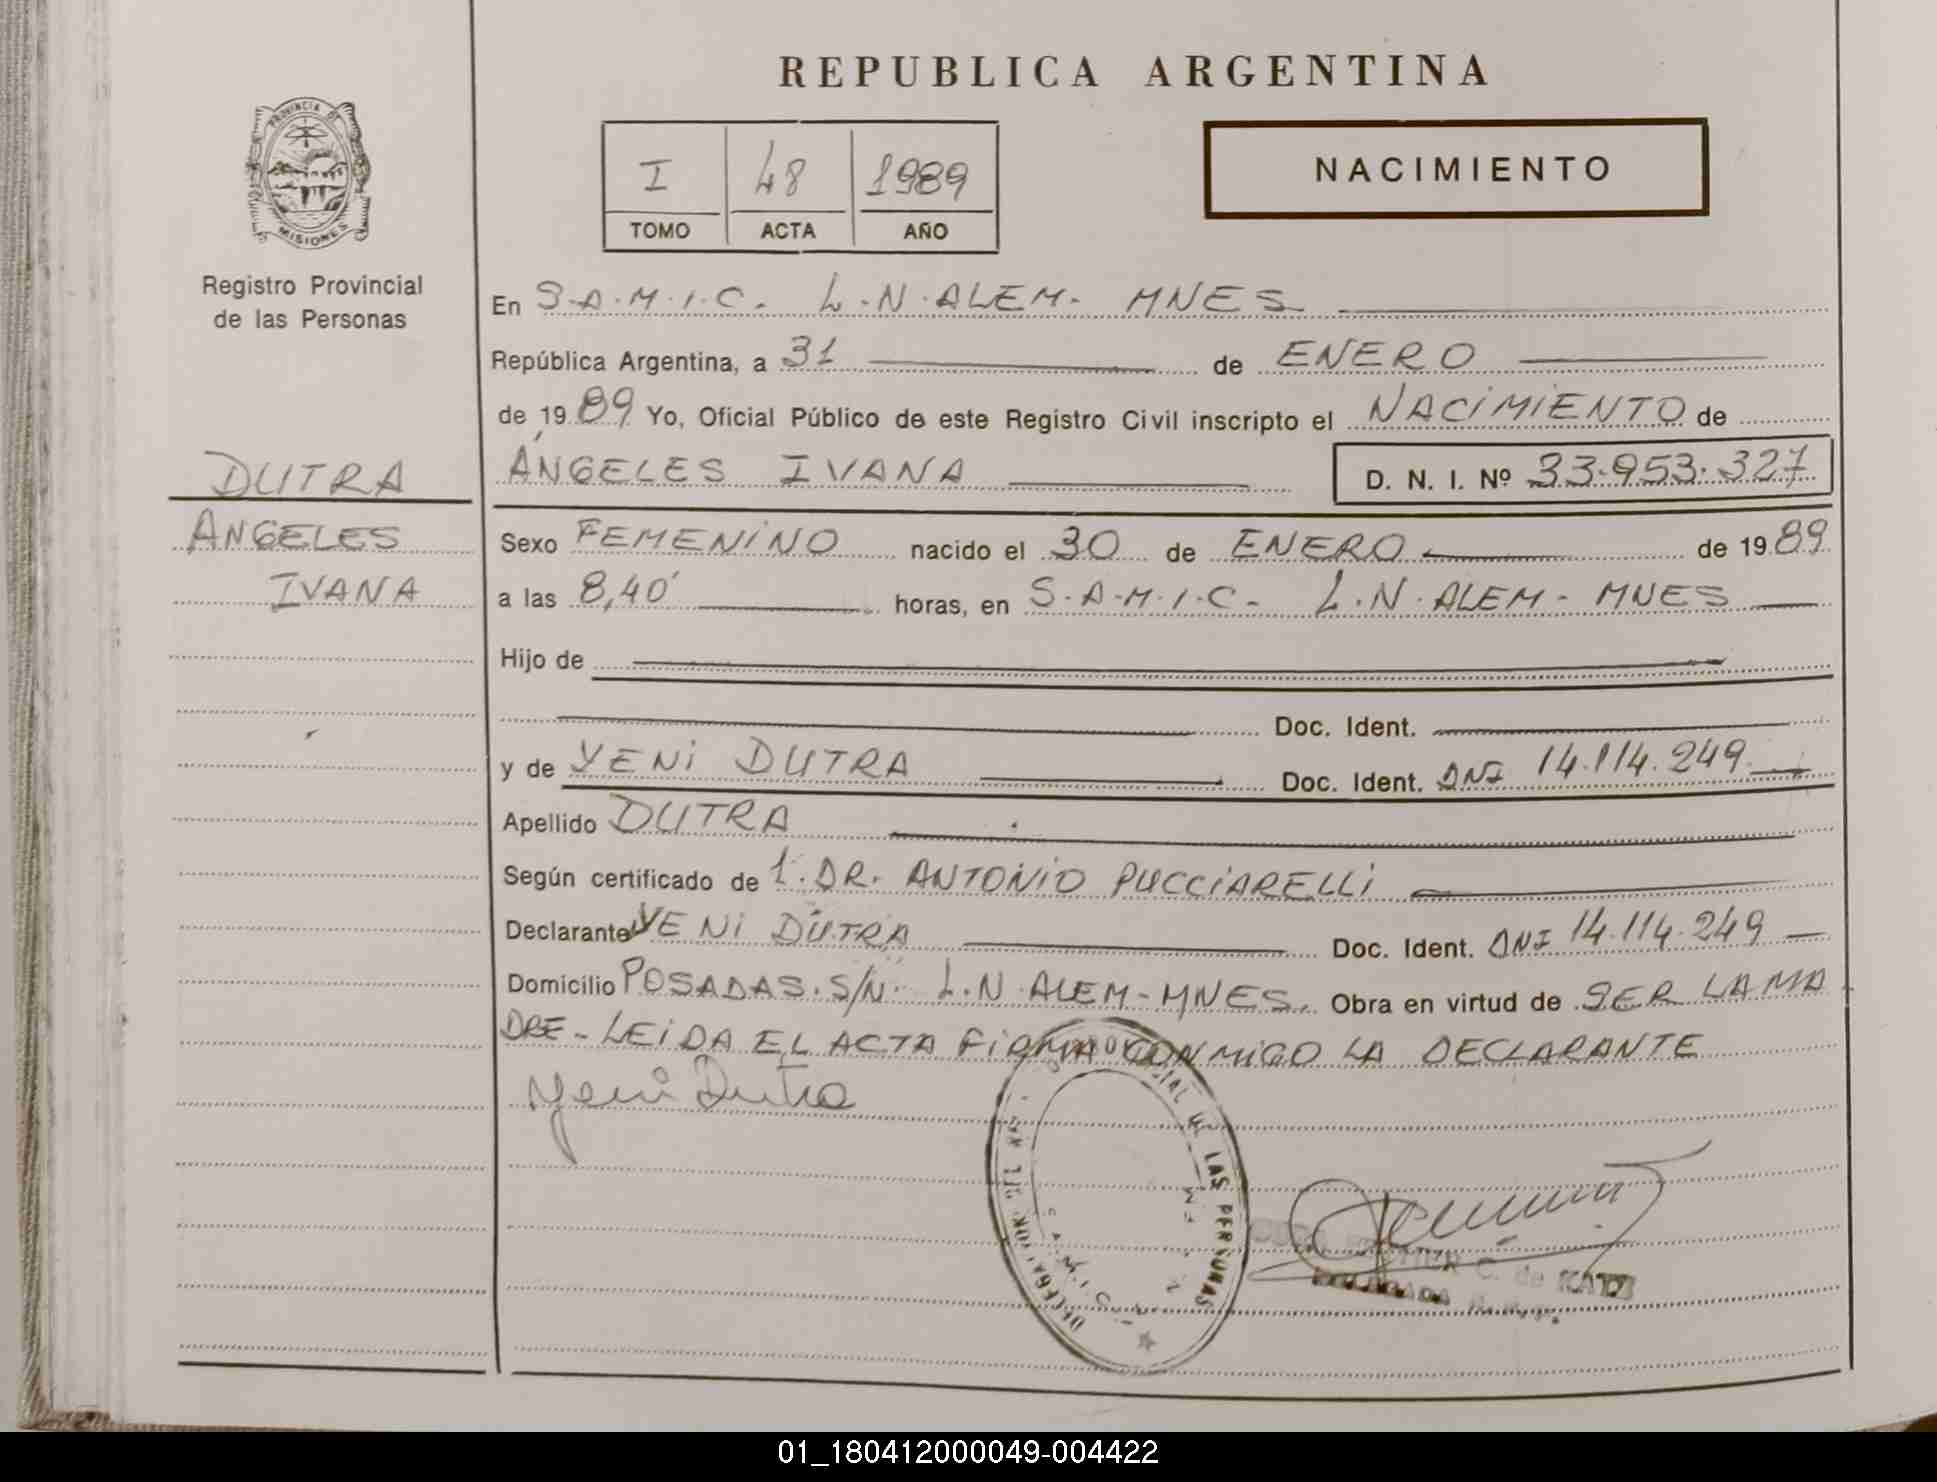 REPUBLICA ARGENTINA
PROVINCIA DE
MISIONES
Registro Provincial
de las Personas
I 48 1989
TOMO ACTA AÑO
NACIMIENTO
En S.A.M.I.C. L.N.ALEM. MNES
República Argentina, a 31 de ENERO
de 1989 Yo, Oficial Público de este Registro Civil inscripto el NACIMIENTO de
DUTRA
ÁNGELES IVANA D. N. I. Nº 33.953.327
ANGELES
IVANA
Sexo FEMENINO nacido el 30 de ENERO de 1989
a las 8,40' horas, en S.A.M.I.C. L.N.ALEM. MNES
Hijo de
Doc. Ident.
y de YENI DUTRA Doc. Ident. DNI 14.114.249
Apellido DUTRA
Según certificado de 1. DR. ANTONIO PUCCIARELLI
Declarante YENI DUTRA Doc. Ident. DNI 14.114.249
Domicilio POSADAS. S/N. L.N.ALEM-MNES. Obra en virtud de SER LA MA
DRE - LEIDA EL ACTA FIRMA CONMIGO LA DECLARANTE
Yeni Dutra
DE LAS PERSONAS
C. de KATZ
DELEGADA
01_180412000049-004422